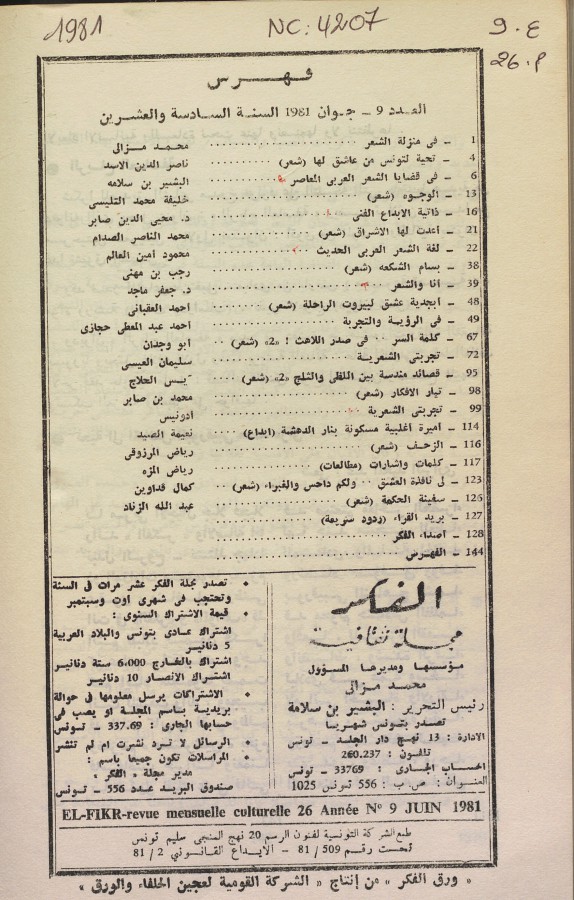 1981 NC: 4207 9.ع
26.م
فهرس
العدد 9 ـ جوان 1981 السنة السادسة والعشرين
1 ـ في منزلة الشعر ............ محمد مزالي
4 ـ تحية لتونس من عاشق لها (شعر) ............ ناصر الدين الاسد
6 ـ في قضايا الشعر العربي المعاصر ............ البشير بن سلامه
13 ـ الوجوه (شعر) ............ خليفة محمد التليسي
16 ـ ذاتية الابداع الفني ............ د. محيى الدين صابر
21 ـ أعدت لها الاشراق (شعر) ............ محمد الناصر الصدام
22 ـ لغة الشعر العربي الحديث ............ محمود أمين العالم
38 ـ بسام الشكعه (شعر) ............ رجب بن مهني
39 ـ أنا والشعر ............ د. جعفر ماجد
48 ـ أبجدية عشق لبيروت الراحلة (شعر) ............ احمد العقباني
49 ـ في الرؤية والتجربة ............ احمد عبد المعطي حجازي
67 ـ كلمة السر ٠٠ في صدر اللاهث ! «2» (شعر) ............ أبو وجدان
72 ـ تجربتي الشعرية ............ سليمان العيسى
95 ـ قصائد مندسة بين اللظى والثلج «2» (شعر) ............ يس الحلاج
98 ـ تيار الافكار (شعر) ............ محمد بن صابر
99 ـ تجربتي الشعرية ............ أدونيس
114 ـ أميرة أغلبية مسكونة بنار الدهشة (ابداع) ............ نعيمة الصيد
116 ـ الزحف (شعر) ............ رياض المرزوقي
117 ـ كلمات واشارات (مطالعات) ............ رياض المزه
123 ـ لي نافذة العشق ٠٠ ولكم داحس والغبراء (شعر) ............ كمال قداوين
126 ـ سفينة الحكمة (شعر) ............ عبد الله الزناد
127 ـ بريد القراء (ردود سريعة) ............
128 ـ أصداء الفكر ............
144 ـ الفهرس ............
الفكر
مجلة ثقافية
مؤسسها ومديرها المسؤول
محمد مزالي
رئيس التحرير : البشير بن سلامة
تصدر بتونس شهريا
الادارة : 13 نهج دار الجلد ـ تونس
تلفون : 260.237
الحساب الجاري : 33769 ـ تونس
العنوان : ص.ب : 556 تونس 1025
• تصدر مجلة الفكر عشر مرات في السنة
وتحتجب في شهري اوت وسبتمبر
• قيمة الاشتراك السنوي :
اشتراك عادي بتونس والبلاد العربية
5 دنانير
اشتراك بالخارج 6،000 ستة دنانير
اشتراك الانصار 10 دنانير
• الاشتراكات يرسل معلومها في حوالة
بريدية باسم المجلة أو يصب في
حسابها الجاري : 337.69 ـ تونس
• الرسائل لا ترد نشرت ام لم تنشر
• المراسلات تكون جميعا باسم :
مدير مجلة « الفكر »
صندوق البريد عدد 556 ـ تونس
EL-FIKR-revue mensuelle culturelle 26 Année N° 9 JUIN 1981
طبع الشركة التونسية لفنون الرسم 20 نهج المنجي سليم تونس
تحت رقم 509 / 81 ـ الايداع القانوني 2 / 81
« ورق الفكر » من إنتاج « الشركة القومية لعجين الحلفاء والورق »